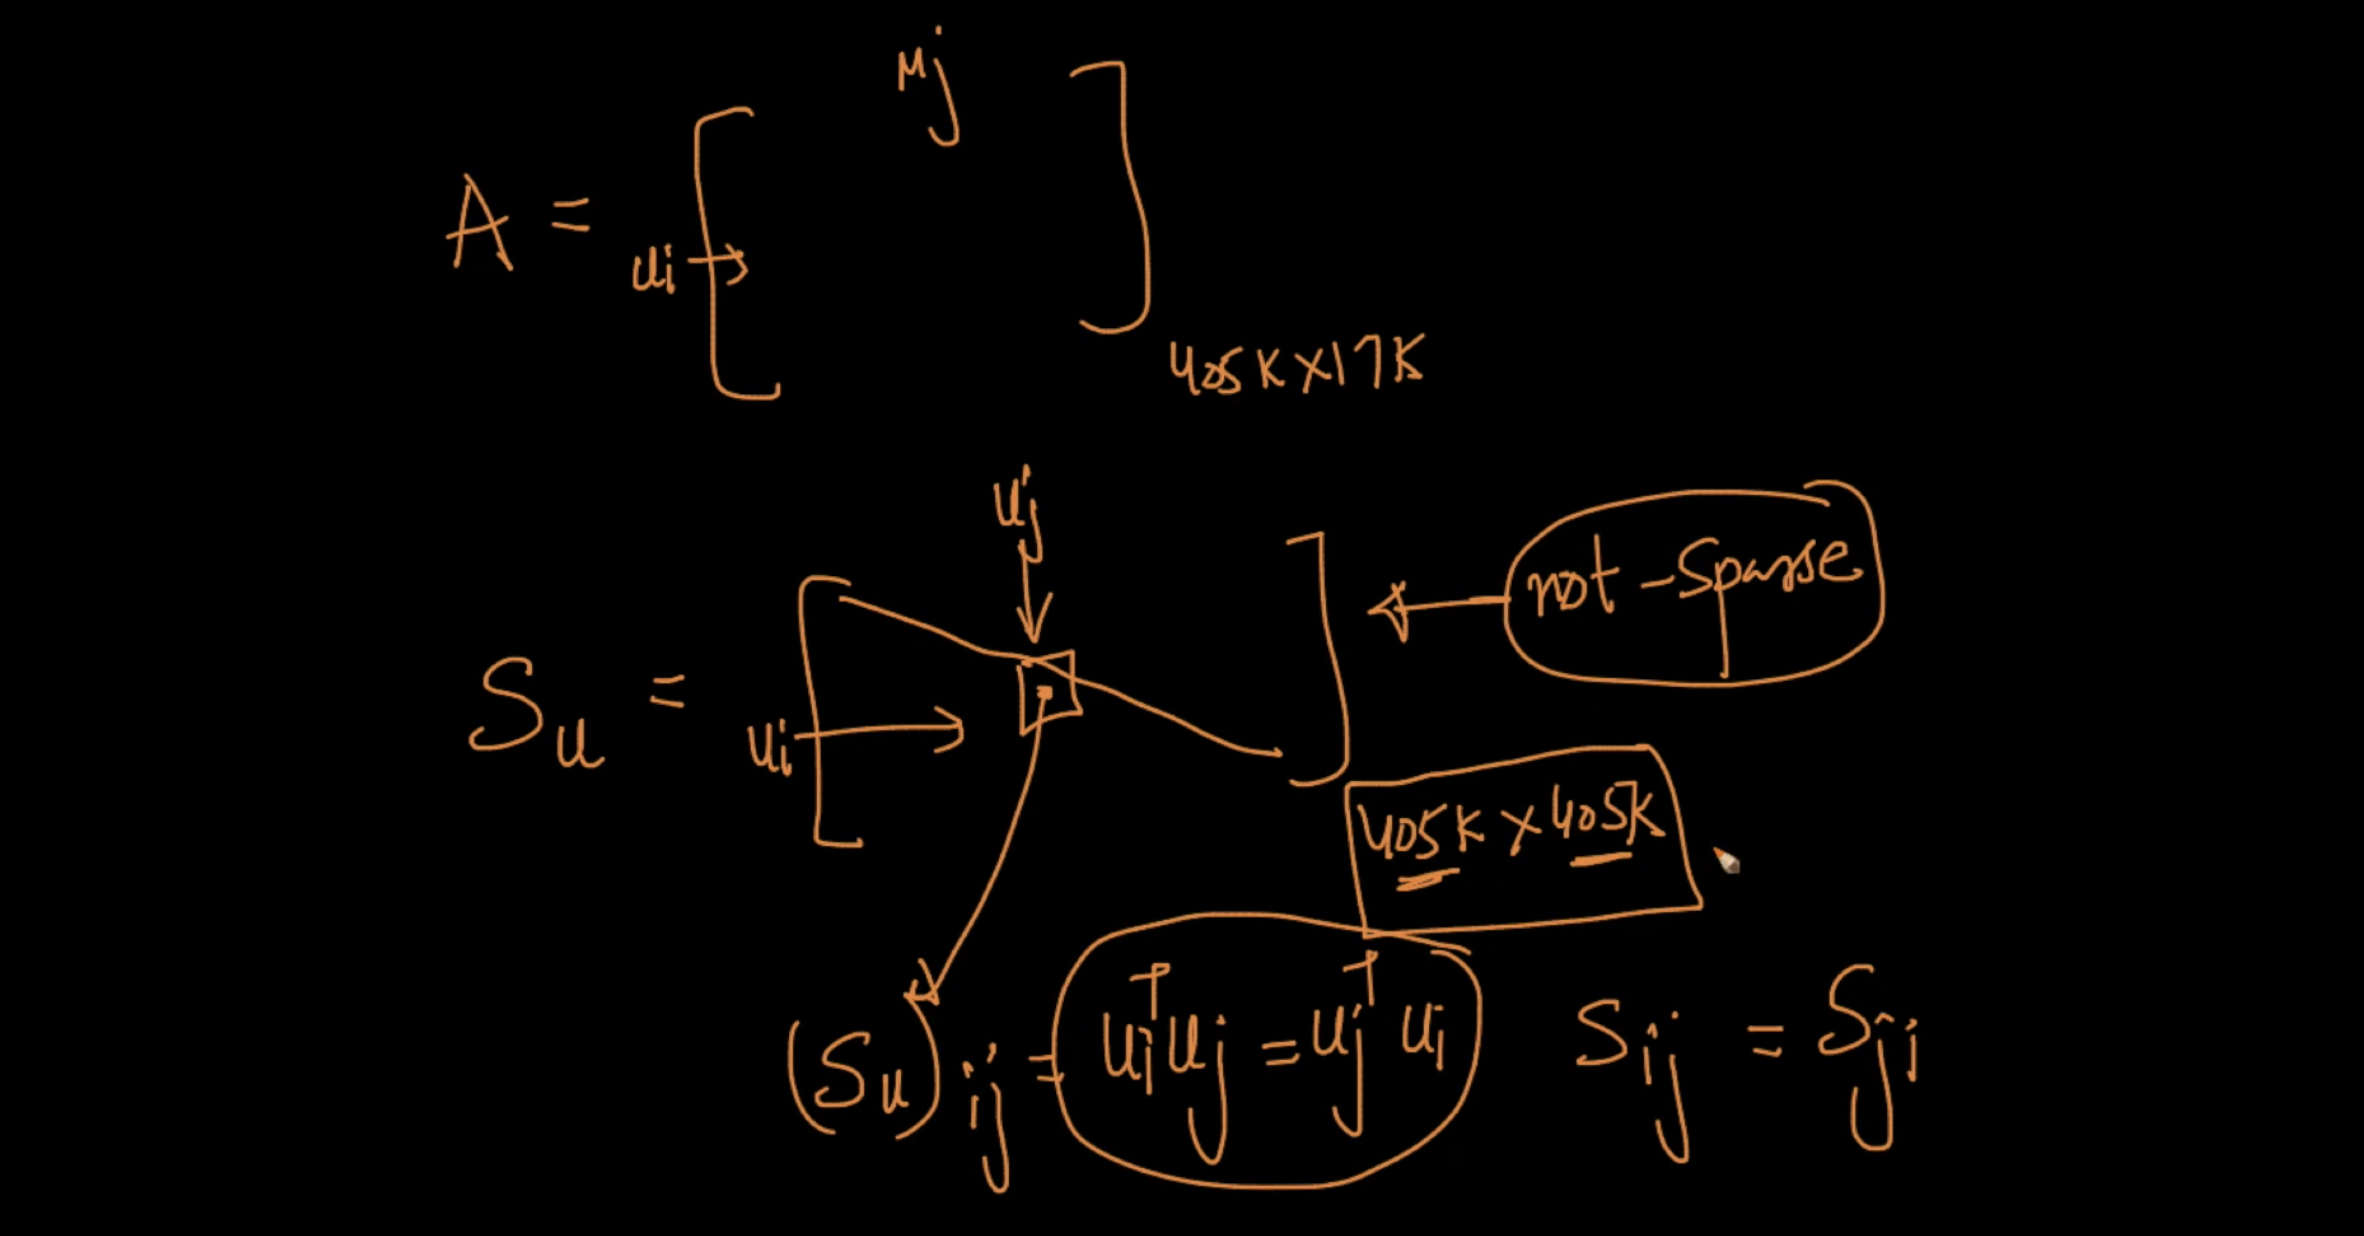 Mj
A =
ui
405K×17K
uj
not-sparse
Su =
ui
405K × 405K
(Su)ij = uiᵀuj = ujᵀui
Sij = Sji